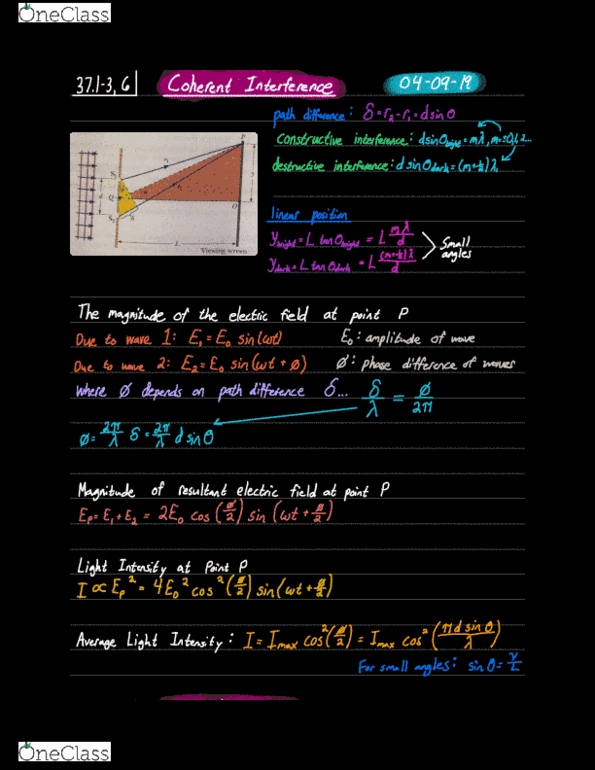 OneClass
37.1-3, 6 Coherent Interference 04-09-19
path difference: δ = r₂-r₁ = d sin θ
constructive interference: d sin θbright = mλ, m=±0,1,2...
destructive interference: d sin θdark = (m+½)λ
linear position
ybright = L tan θbright = L mλ/d
ydark = L tan θdark = L (m+½)λ/d
Small angles
Viewing screen
The magnitude of the electric field at point P
Due to wave 1: E₁ = E₀ sin(ωt) E₀: amplitude of wave
Due to wave 2: E₂ = E₀ sin(ωt + ø) ø: phase difference of waves
where ø depends on path difference δ... δ/λ = ø/2π
ø = 2π/λ δ = 2π/λ d sin θ
Magnitude of resultant electric field at point P
Eₚ = E₁ + E₂ = 2E₀ cos(ø/2) sin(ωt + ø/2)
Light Intensity at Point P
I ∝ Eₚ² = 4E₀² cos²(ø/2) sin(ωt + ø/2)
Average Light Intensity: I = Imax cos²(ø/2) = Imax cos²(πd sin θ/λ)
For small angles: sin θ = y/L
OneClass